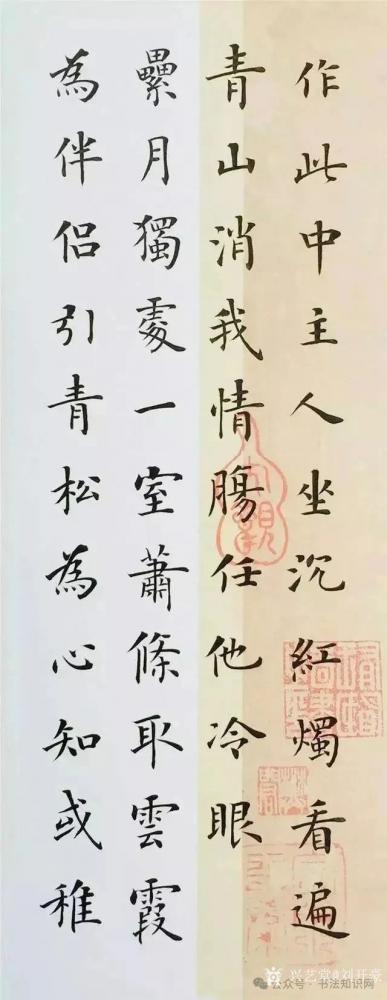 作此中主人坐沉紅燭看遍
青山消我情腸任他冷眼
纍月獨處一室蕭條取雲霞
為伴侶引青松為心知或稚
兴艺堂@刘开豪
公众号·书法知识网